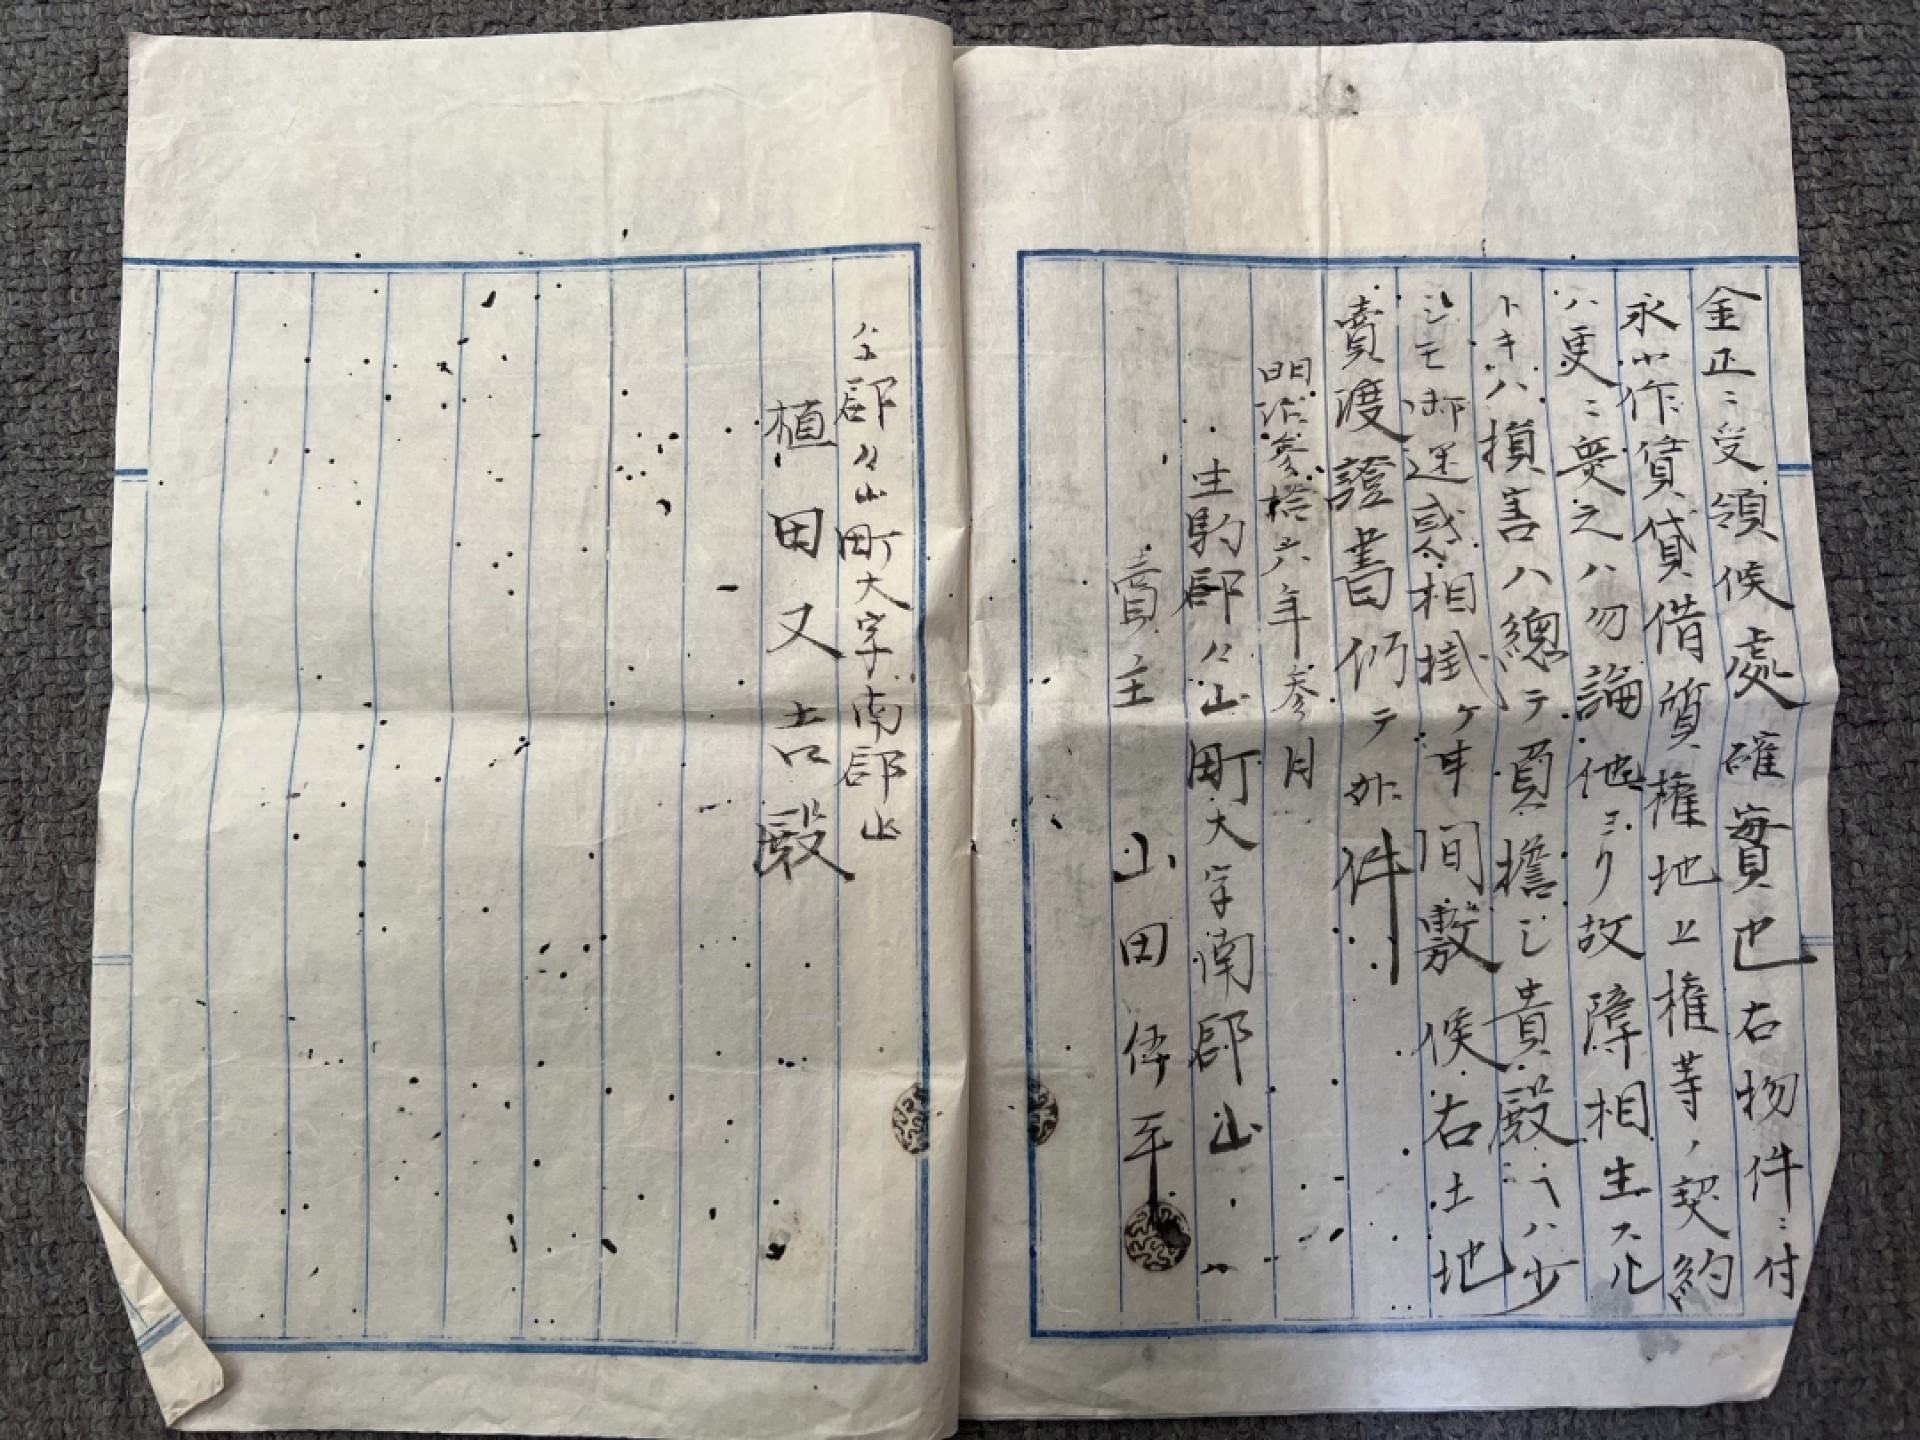 金正ニ受領候處確實也右物件ニ付
永小作賃貸借質權地上權等ノ契約
ハ更ニ無之ハ勿論他ヨリ故障相生スル
トキハ損害ハ總テ負擔シ貴殿ヘハ少
シモ御迷惑相掛ケ申間敷候右土地
賣渡證書仍テ如件
明治参拾六年参月
生駒郡々山町大字南郡山
賣主 山田伊平
仝郡々山町大字南郡山
植田又吉殿